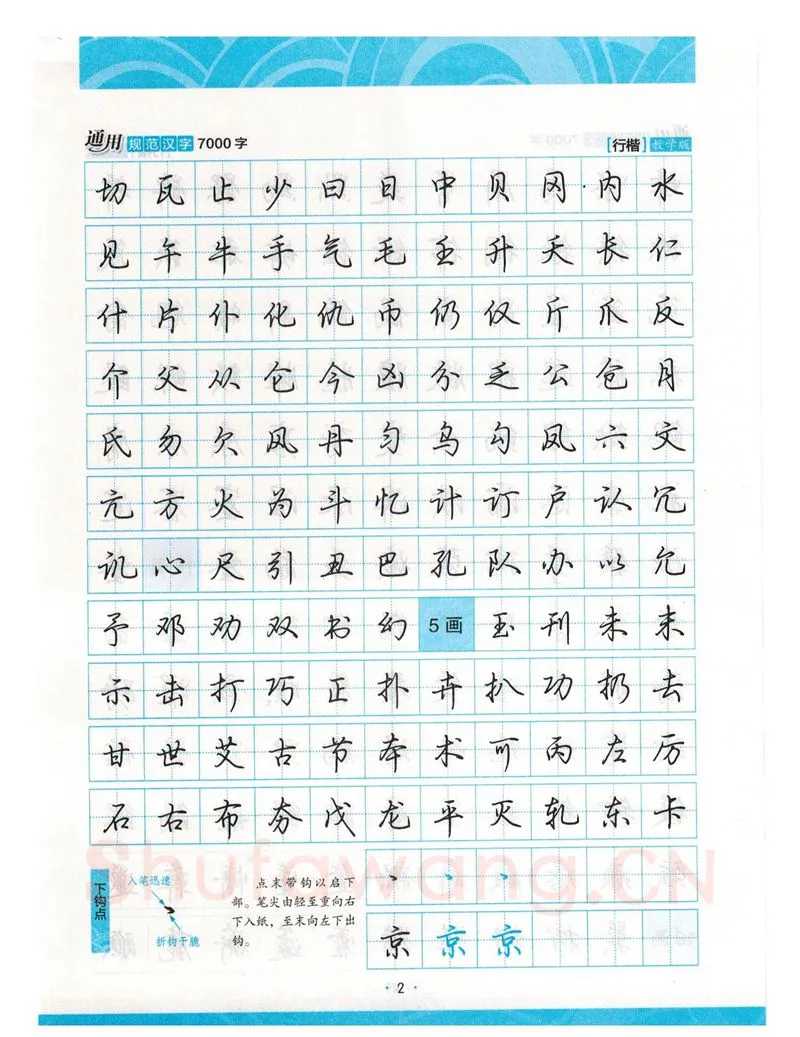 通用 规范汉字 7000字 [行楷] 教学版
切瓦止少曰日中贝冈内水
见午牛手气毛壬升夭长仁
什片仆化仇币仍仅斤爪反
介父从仑今凶分乏公仓月
氏勿欠风丹匀乌勾凤六文
亢方火为斗忆计订户认冗
讥心尺引丑巴孔队办以允
予邓劝双书幻5画玉刊未末
示击打巧正扑卉扒功扔去
甘世艾古节本术可丙左厉
石右布夯戊龙平灭轧东卡
Shufawang.CN
下钩点
入笔迅速
折钩干脆
点末带钩以启下
部。笔尖由轻至重向右
下入纸，至末向左下出
钩。
京京京
· 2 ·